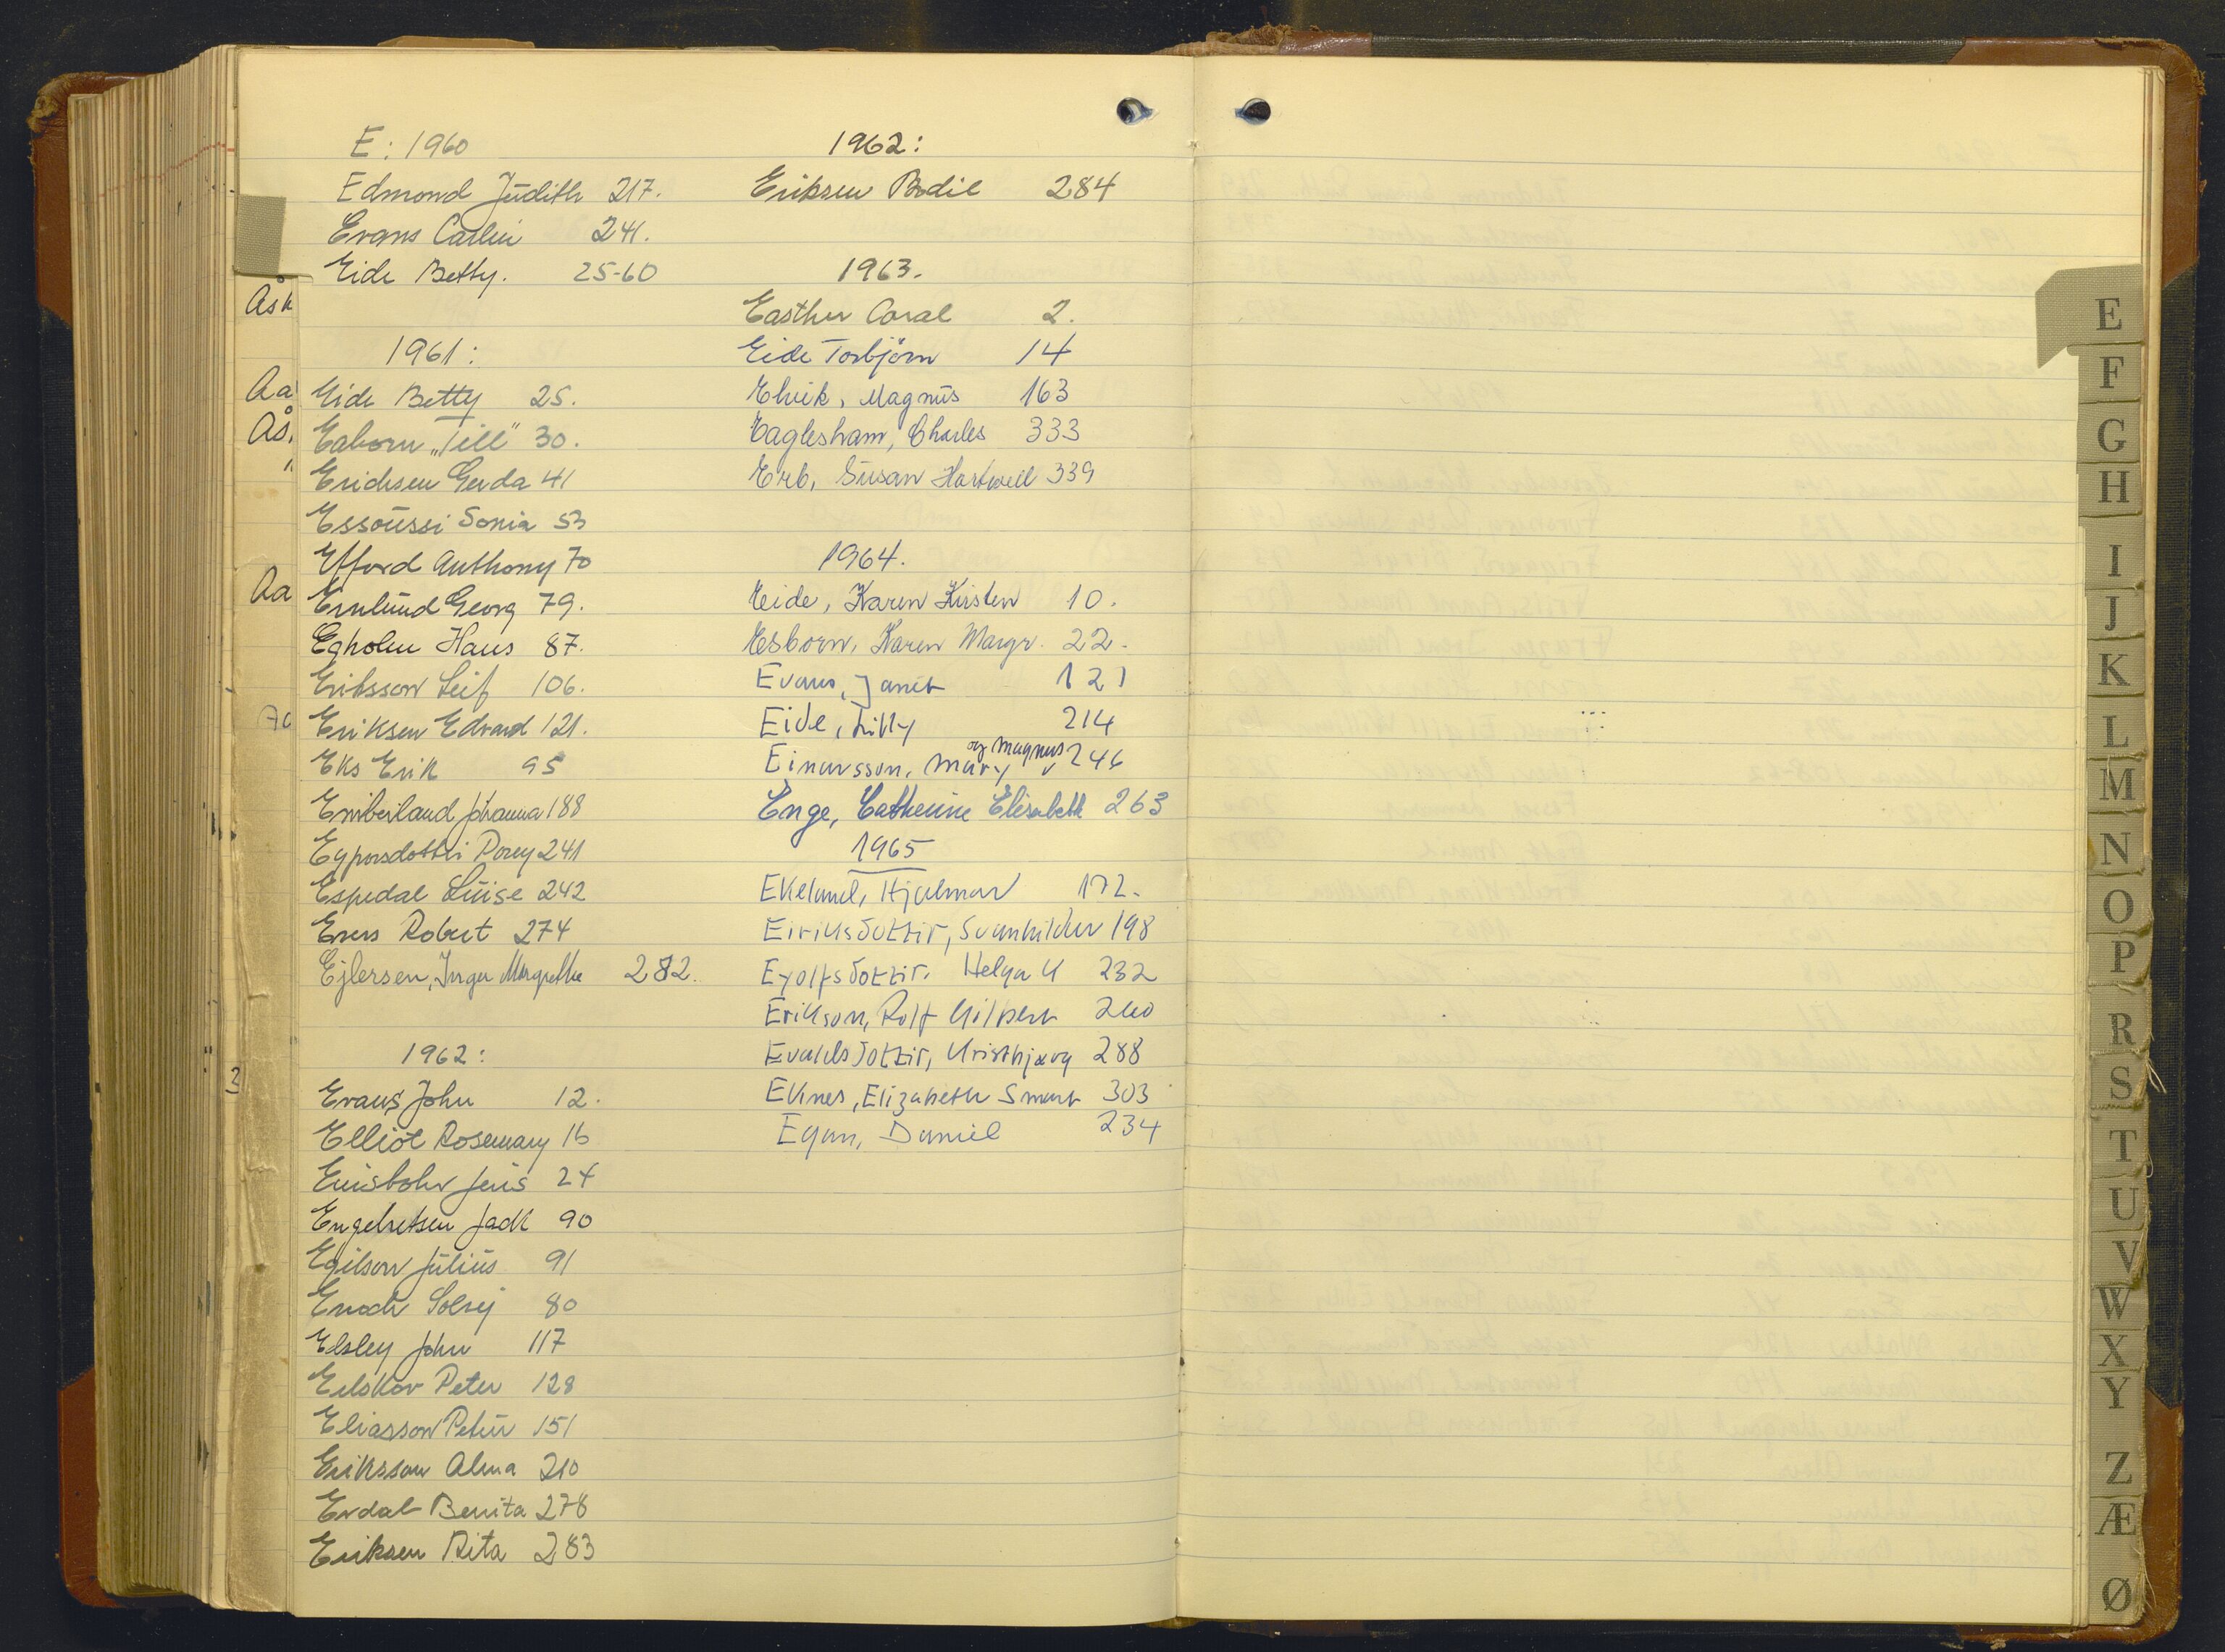 E: 1960
Edmond Judith 217.
Evans Carlin 241.
Eide Betty. 25-60
1961:
Eide Betty 25.
Eaborn „Till" 30.
Erichsen Gerda 41
Essoussi Sonia 53
Efford Anthony 70
Ernlund Georg 79.
Egholm Hans 87.
Eriksson Leif 106.
Eriksen Edvard 121.
Eks Erik 95
Emberland Johanna 188
Dorey 241
Espedal Luise 242
Robert 274
Ejlersen, Inger Margrethe 282.
1962:
Evans John 12.
Elliot Rosemary 16
Jens 24
Engebretsen Jack 90
Egilson Julius 91
Enoch Solvej 80
Elsley John 117
Eilskov Peter 128
Eliasson Petur 151
Eriksson Alma 210
Erdal Benita 278
Eriksen Rita 283
1962:
Eriksen Bodil 284
1963.
Easther Coral 2.
Eide Torbjörn 14
Elvik, Magnus 163
Eaglesham, Charles 333
Erb, Susan Hartwell 339
1964.
Eide, Karen Kirsten 10.
Esborn, Karen Margr. 22.
Evans, Janet 121
Eide, Lilly 214
og Magnus
Einarsson, Mary 246
Enge, Cathrine Elisabeth 263
1965
Ekelund, Hjalmar 172.
Eiriksdottir, Svanhildur 198
Eyolfsdottir. Helga K 232
Erikson, Rolf Gilbert 260
Evaldsdottir, Kristbjørg 288
Eknes, Elizabeth Smart 303
Egan, Daniel 234
Åsk
Aa
Ås.
"
Aa
E
F
G
H
I
J
K
L
M
N
O
P
R
S
T
U
V
W
X
Y
Z
Æ
Ø